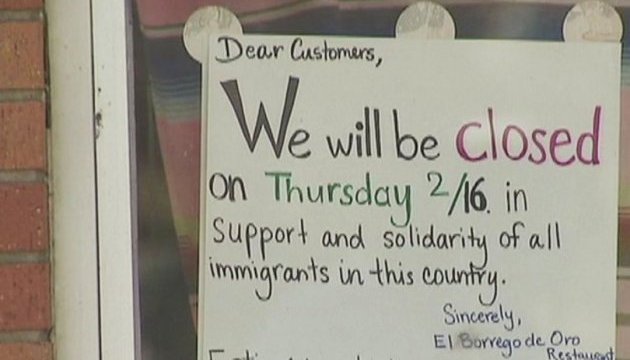 Dear Customers,
We will be closed
on Thursday 2/16. in
support and solidarity of all
immigrants in this country.
Sincerely,
El Borrego de Oro
Restaurant